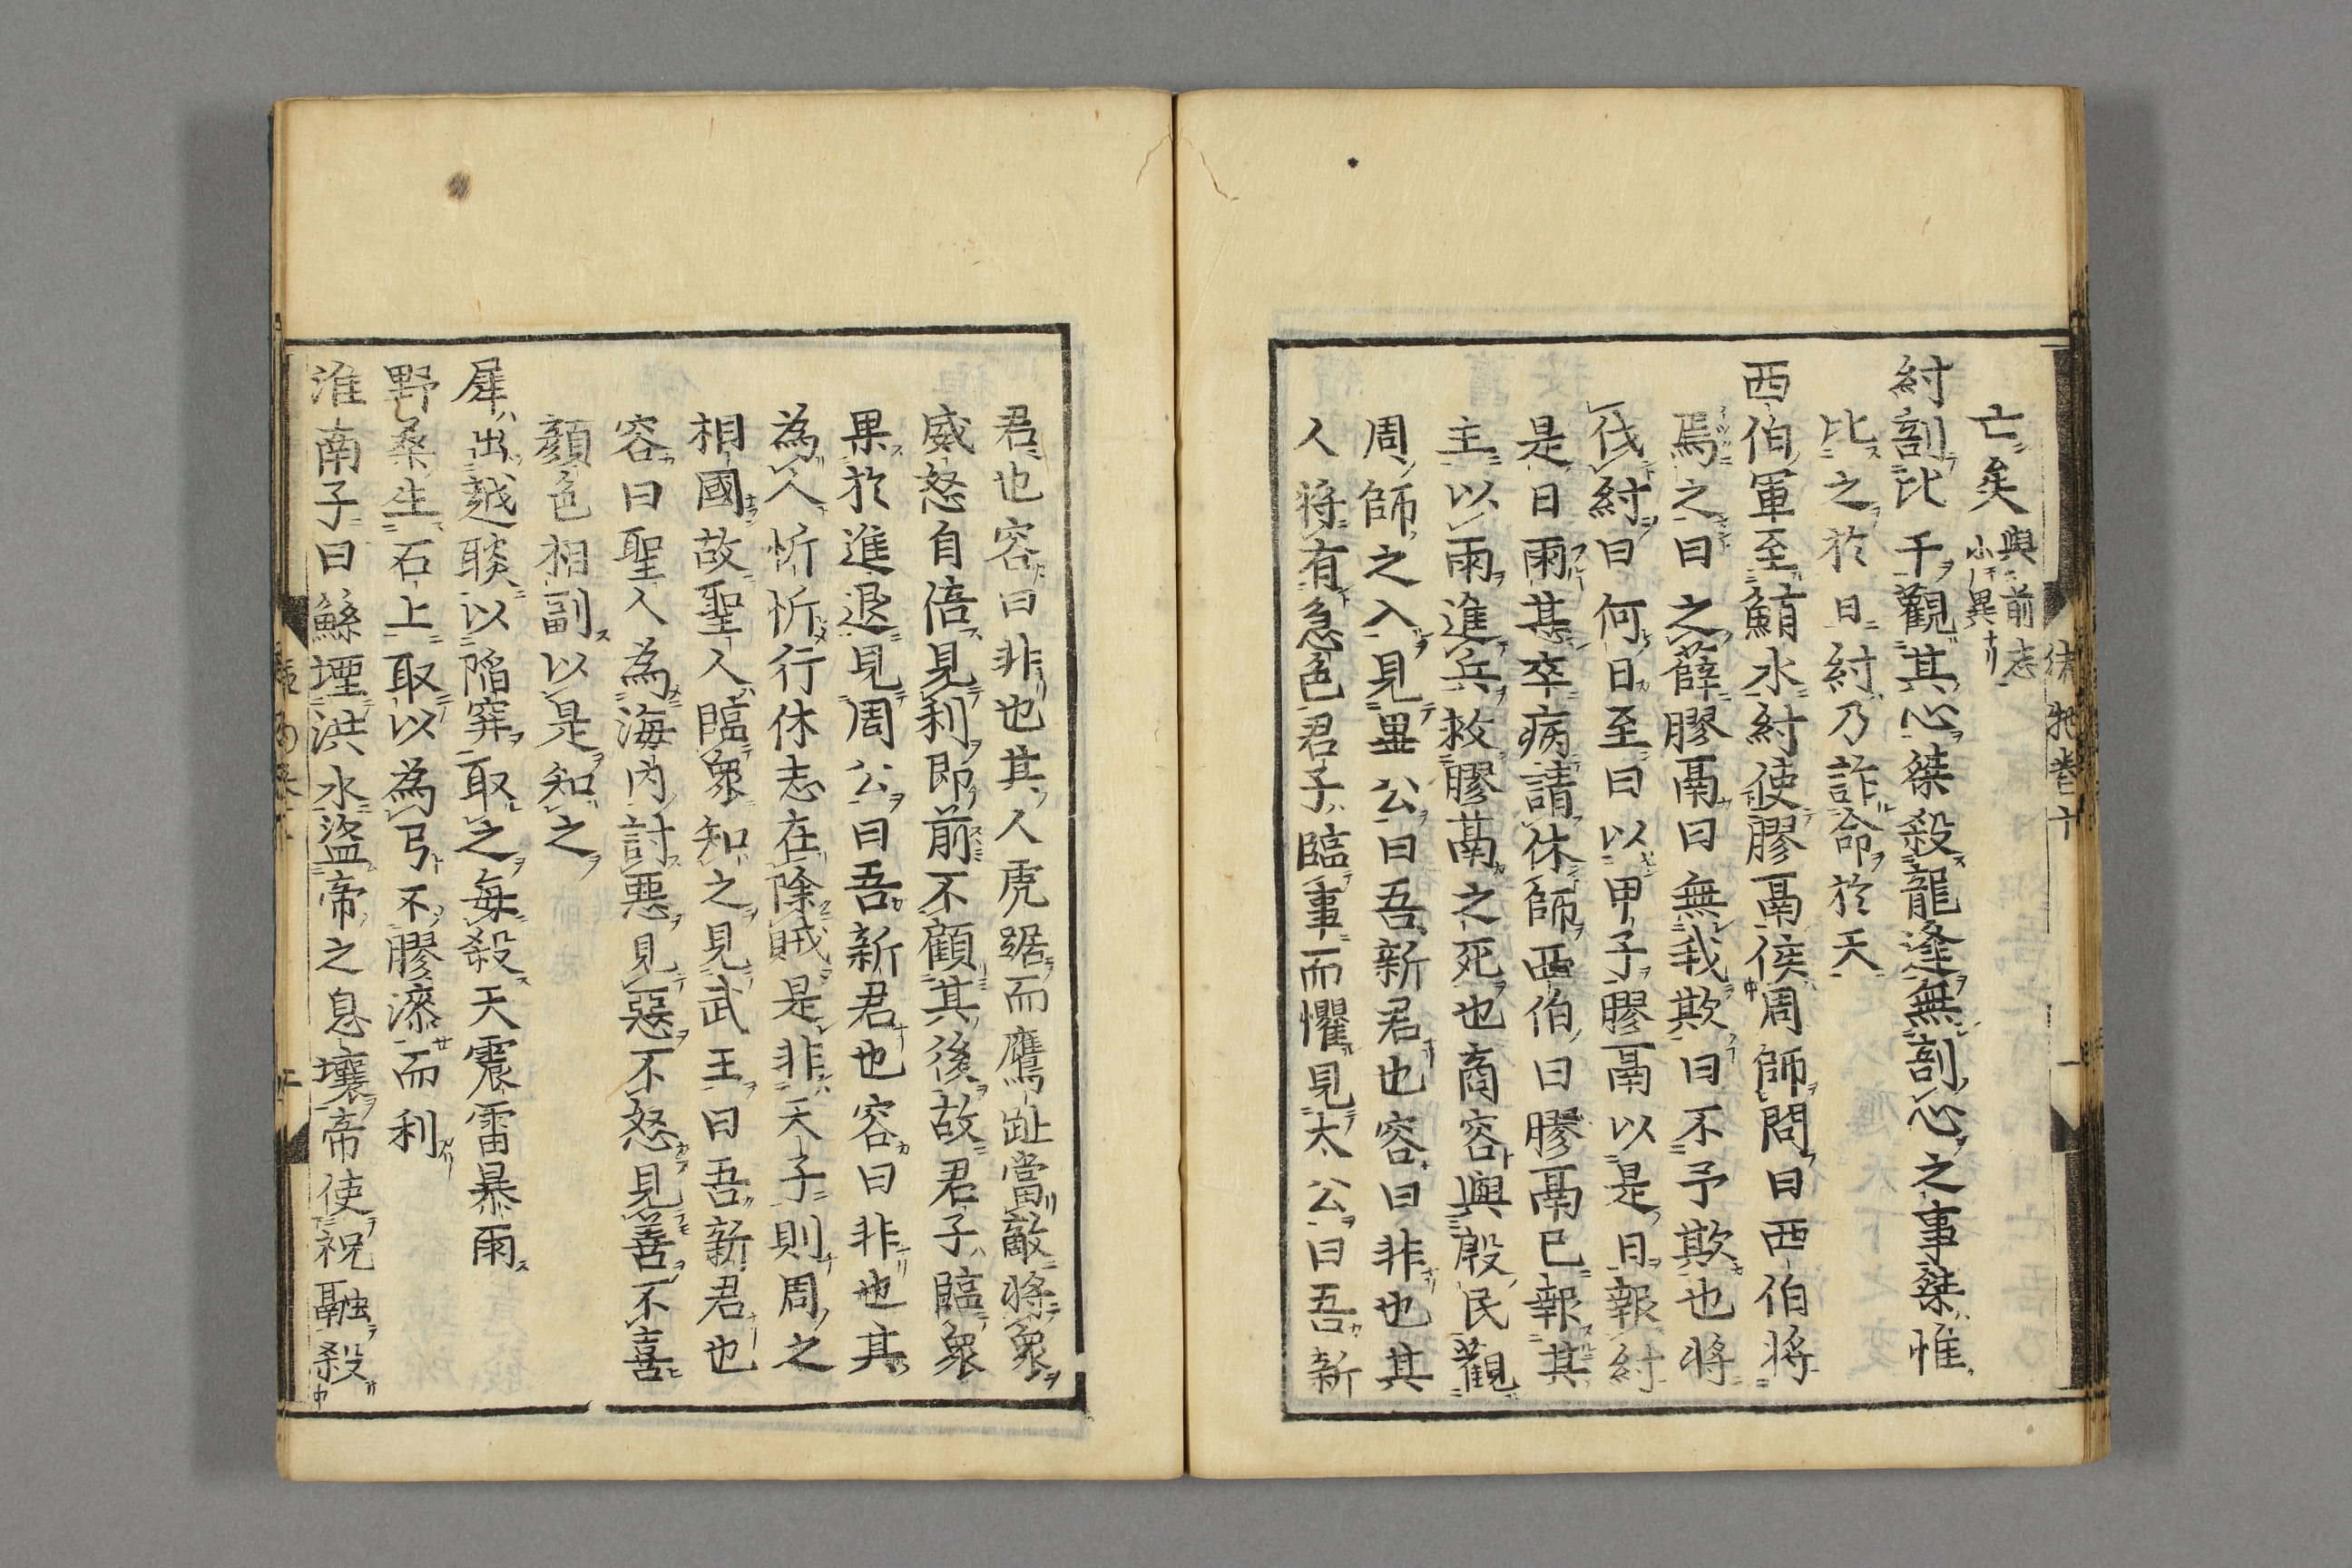 亡矣與前志
小異
紂剖比干觀其心桀殺龍逢無剖心之事桀惟
比之於日紂乃詐命於天
西伯軍至鮪水紂使膠鬲侯周師問曰西伯將
焉之曰之薛膠鬲曰無我欺曰不予欺也將
伐紂曰何日至曰以甲子膠鬲以是日報紂
是日雨甚卒病請休師西伯曰膠鬲已報其
主以雨進兵救膠鬲之死也商容與殷民觀
周師之入見畢公曰吾新君也容曰非也其
人將有急色君子臨事而懼見太公曰吾新
續博物志卷十 一
君也容曰非也其人虎踞而鷹趾當敵將衆
威怒自倍見利即前不顧其後故君子臨衆
果於進退見周公曰吾新君也容曰非也其
為人忻忻行休志在除賊是非天子則周之
相國故聖人臨衆知之見武王曰吾新君也
容曰聖人為海內討惡見惡不怒見善不喜
顏色相副以是知之
犀出越睒以陷穽取之每殺天震雷暴雨
野桑生石上取以為弓不膠漆而利
淮南子曰鯀堙洪水盜帝之息壤帝使祝融殺